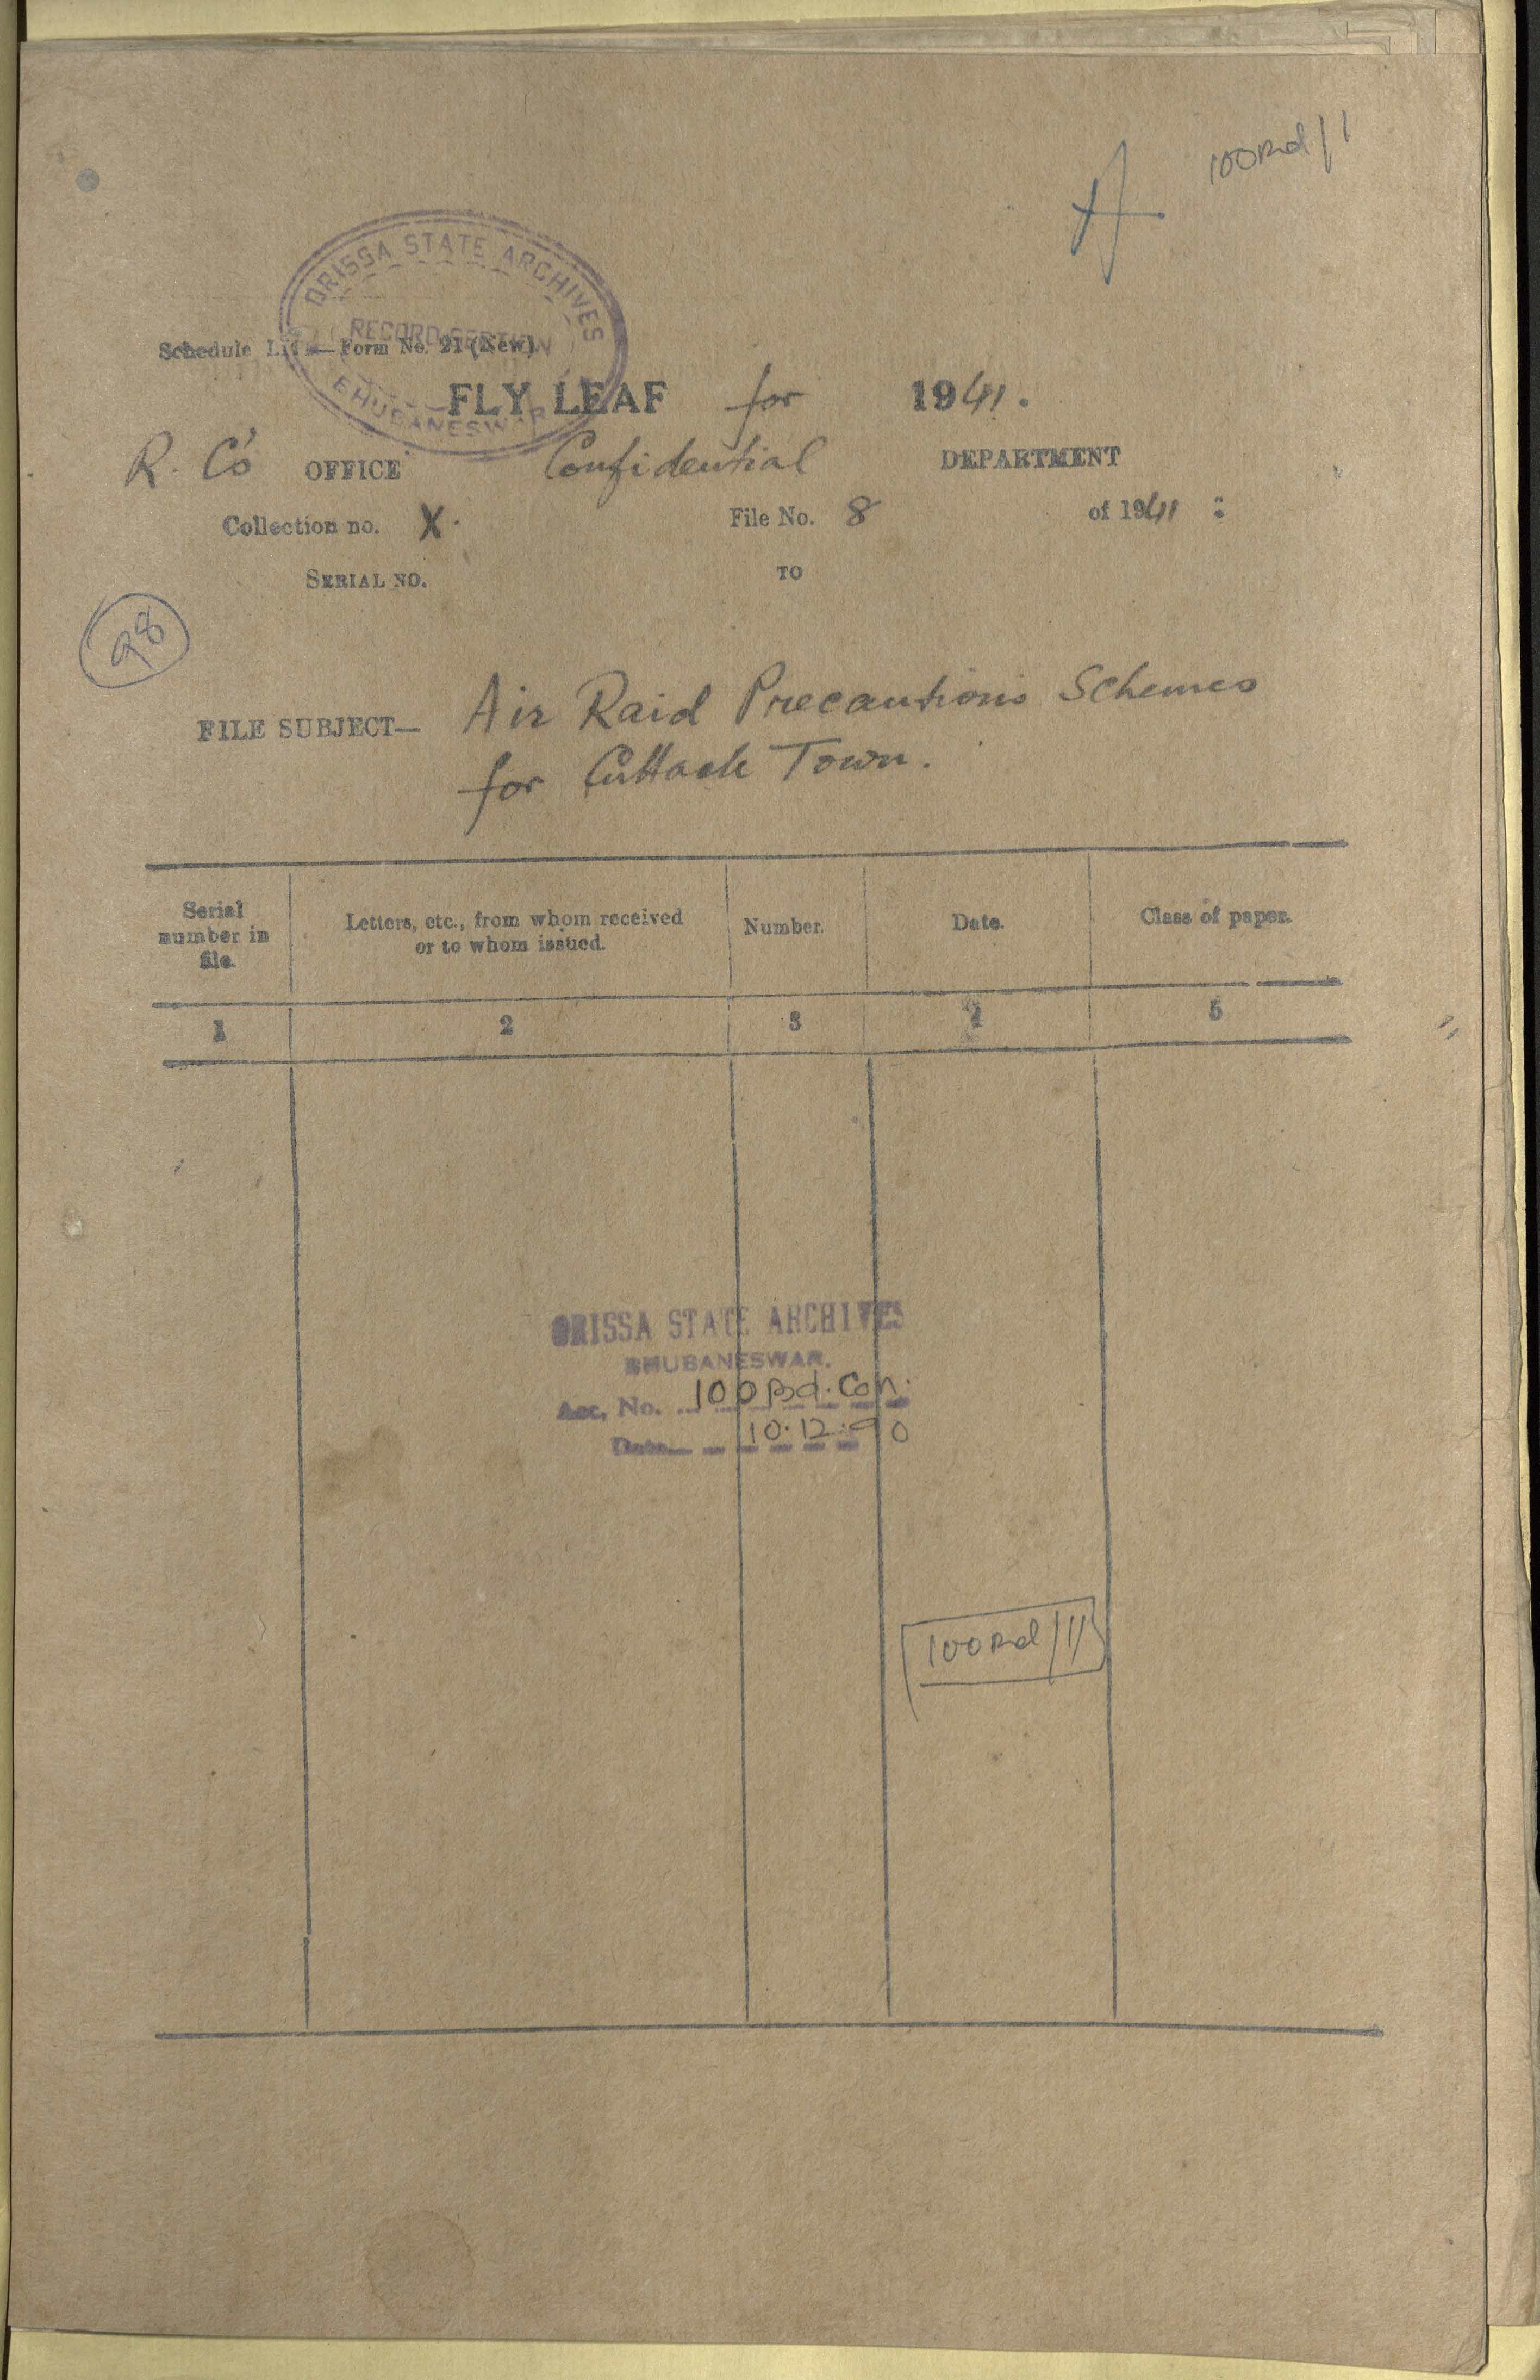 100Rd/1
A
ORISSA STATE ARCHIVES
RECORD SECTION
BHUBANESWAR
Form No. 21 (New).
FLY LEAF for 1941.
R. C's OFFICE Confidential DEPARTMENT
Collection no. X. File No. 8 of 1941 :
SERIAL NO. TO
98
FILE SUBJECT— Air Raid Precautions Schemes
for Cuttack Town.
Serial number in file. Letters, etc., from whom received or to whom issued. Number. Date. Class of paper.
1 2 3 4 5
ORISSA STATE ARCHIVES
BHUBANESWAR.
Acc. No. 100 Bd. Con.
Date 10.12.90